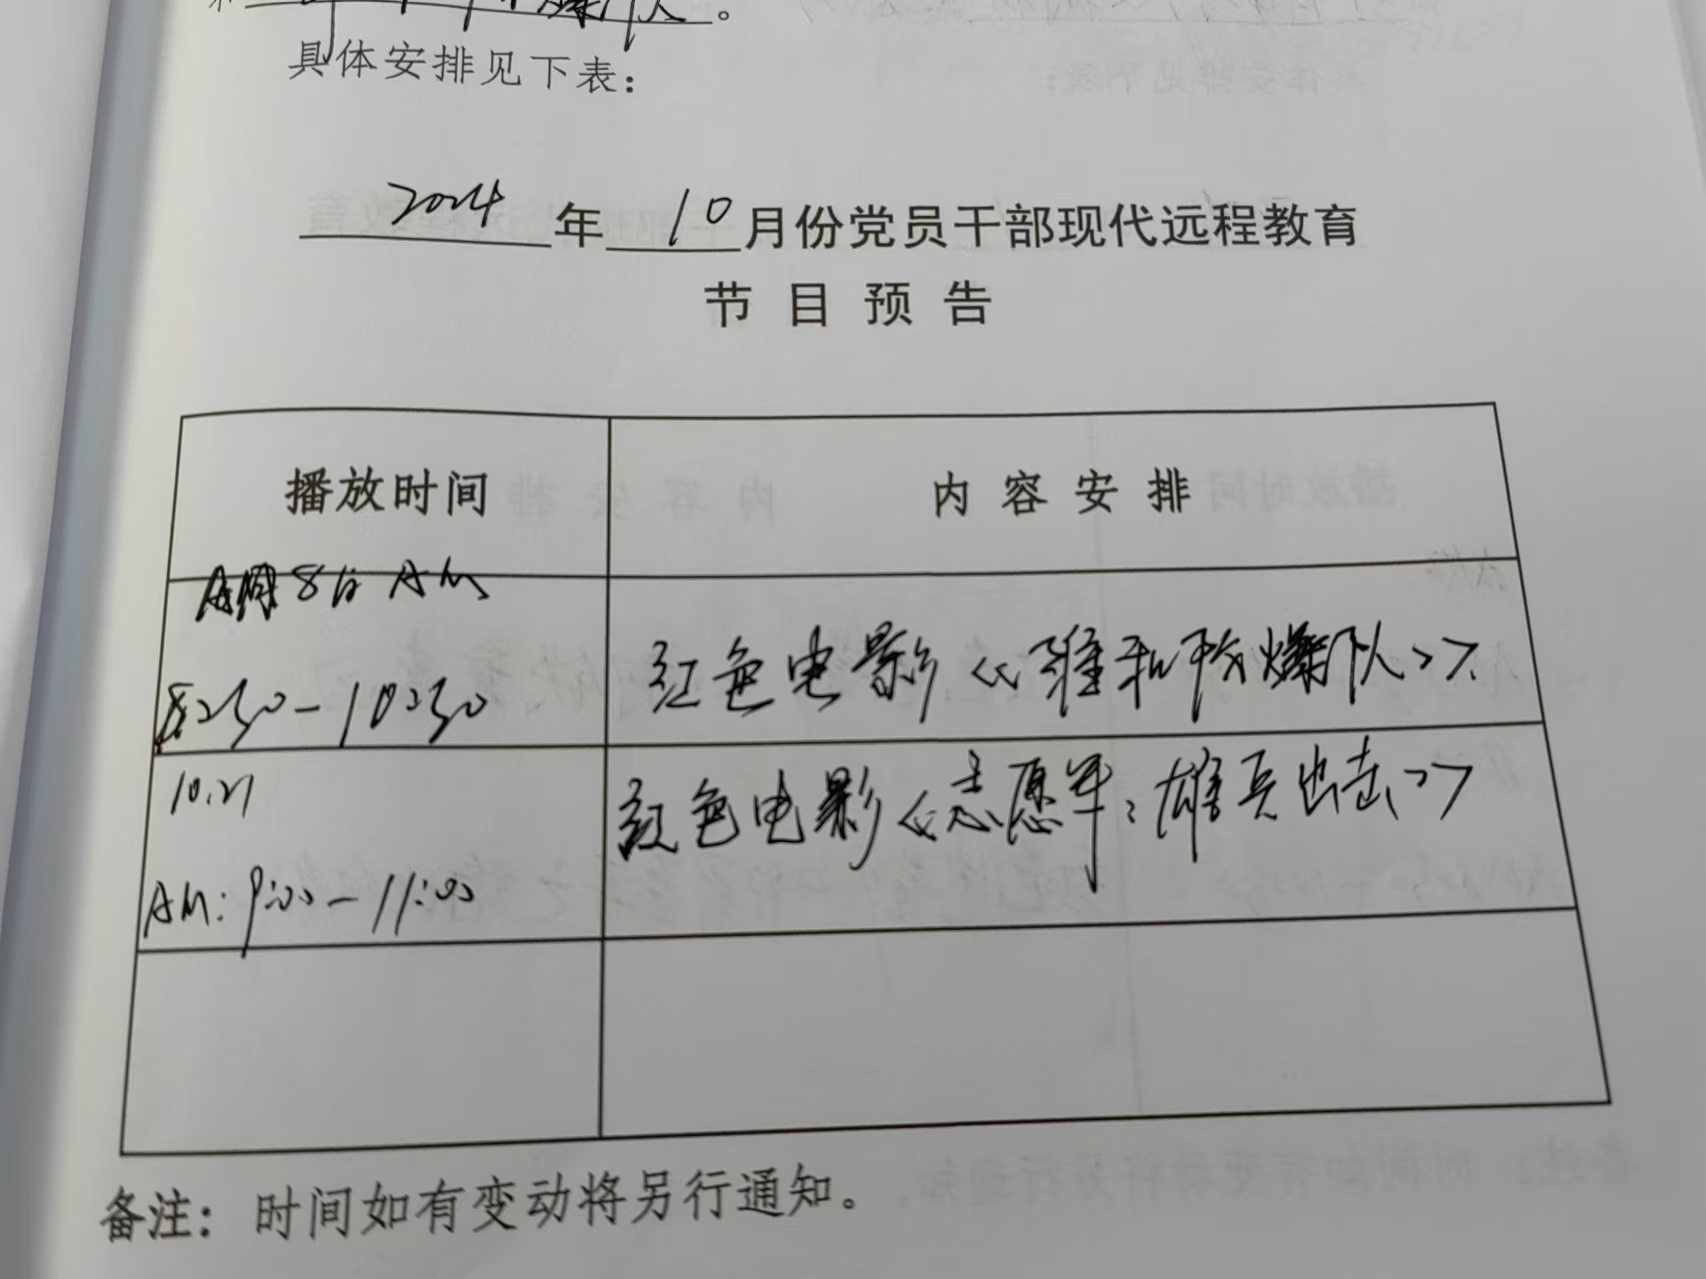 爆队。
具体安排见下表：
2024年10月份党员干部现代远程教育
节目预告
播放时间 内容安排
8日 AM
8:30-10:30 红色电影《维和防爆队》
10.21 红色电影《志愿军：雄兵出击》
AM:9:00-11:00
备注：时间如有变动将另行通知。